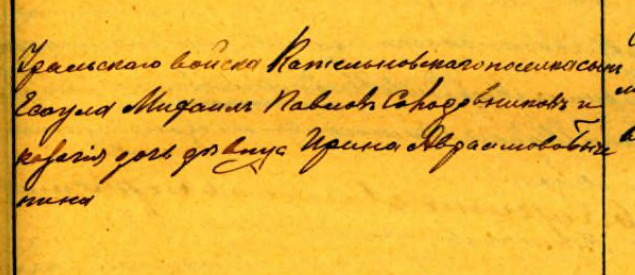 Уральскаго войска Котельновскаго поселка сын
Есаула Михаилъ Павловъ Сородовниковъ и
казачья дочь девица Ирина Авраамова